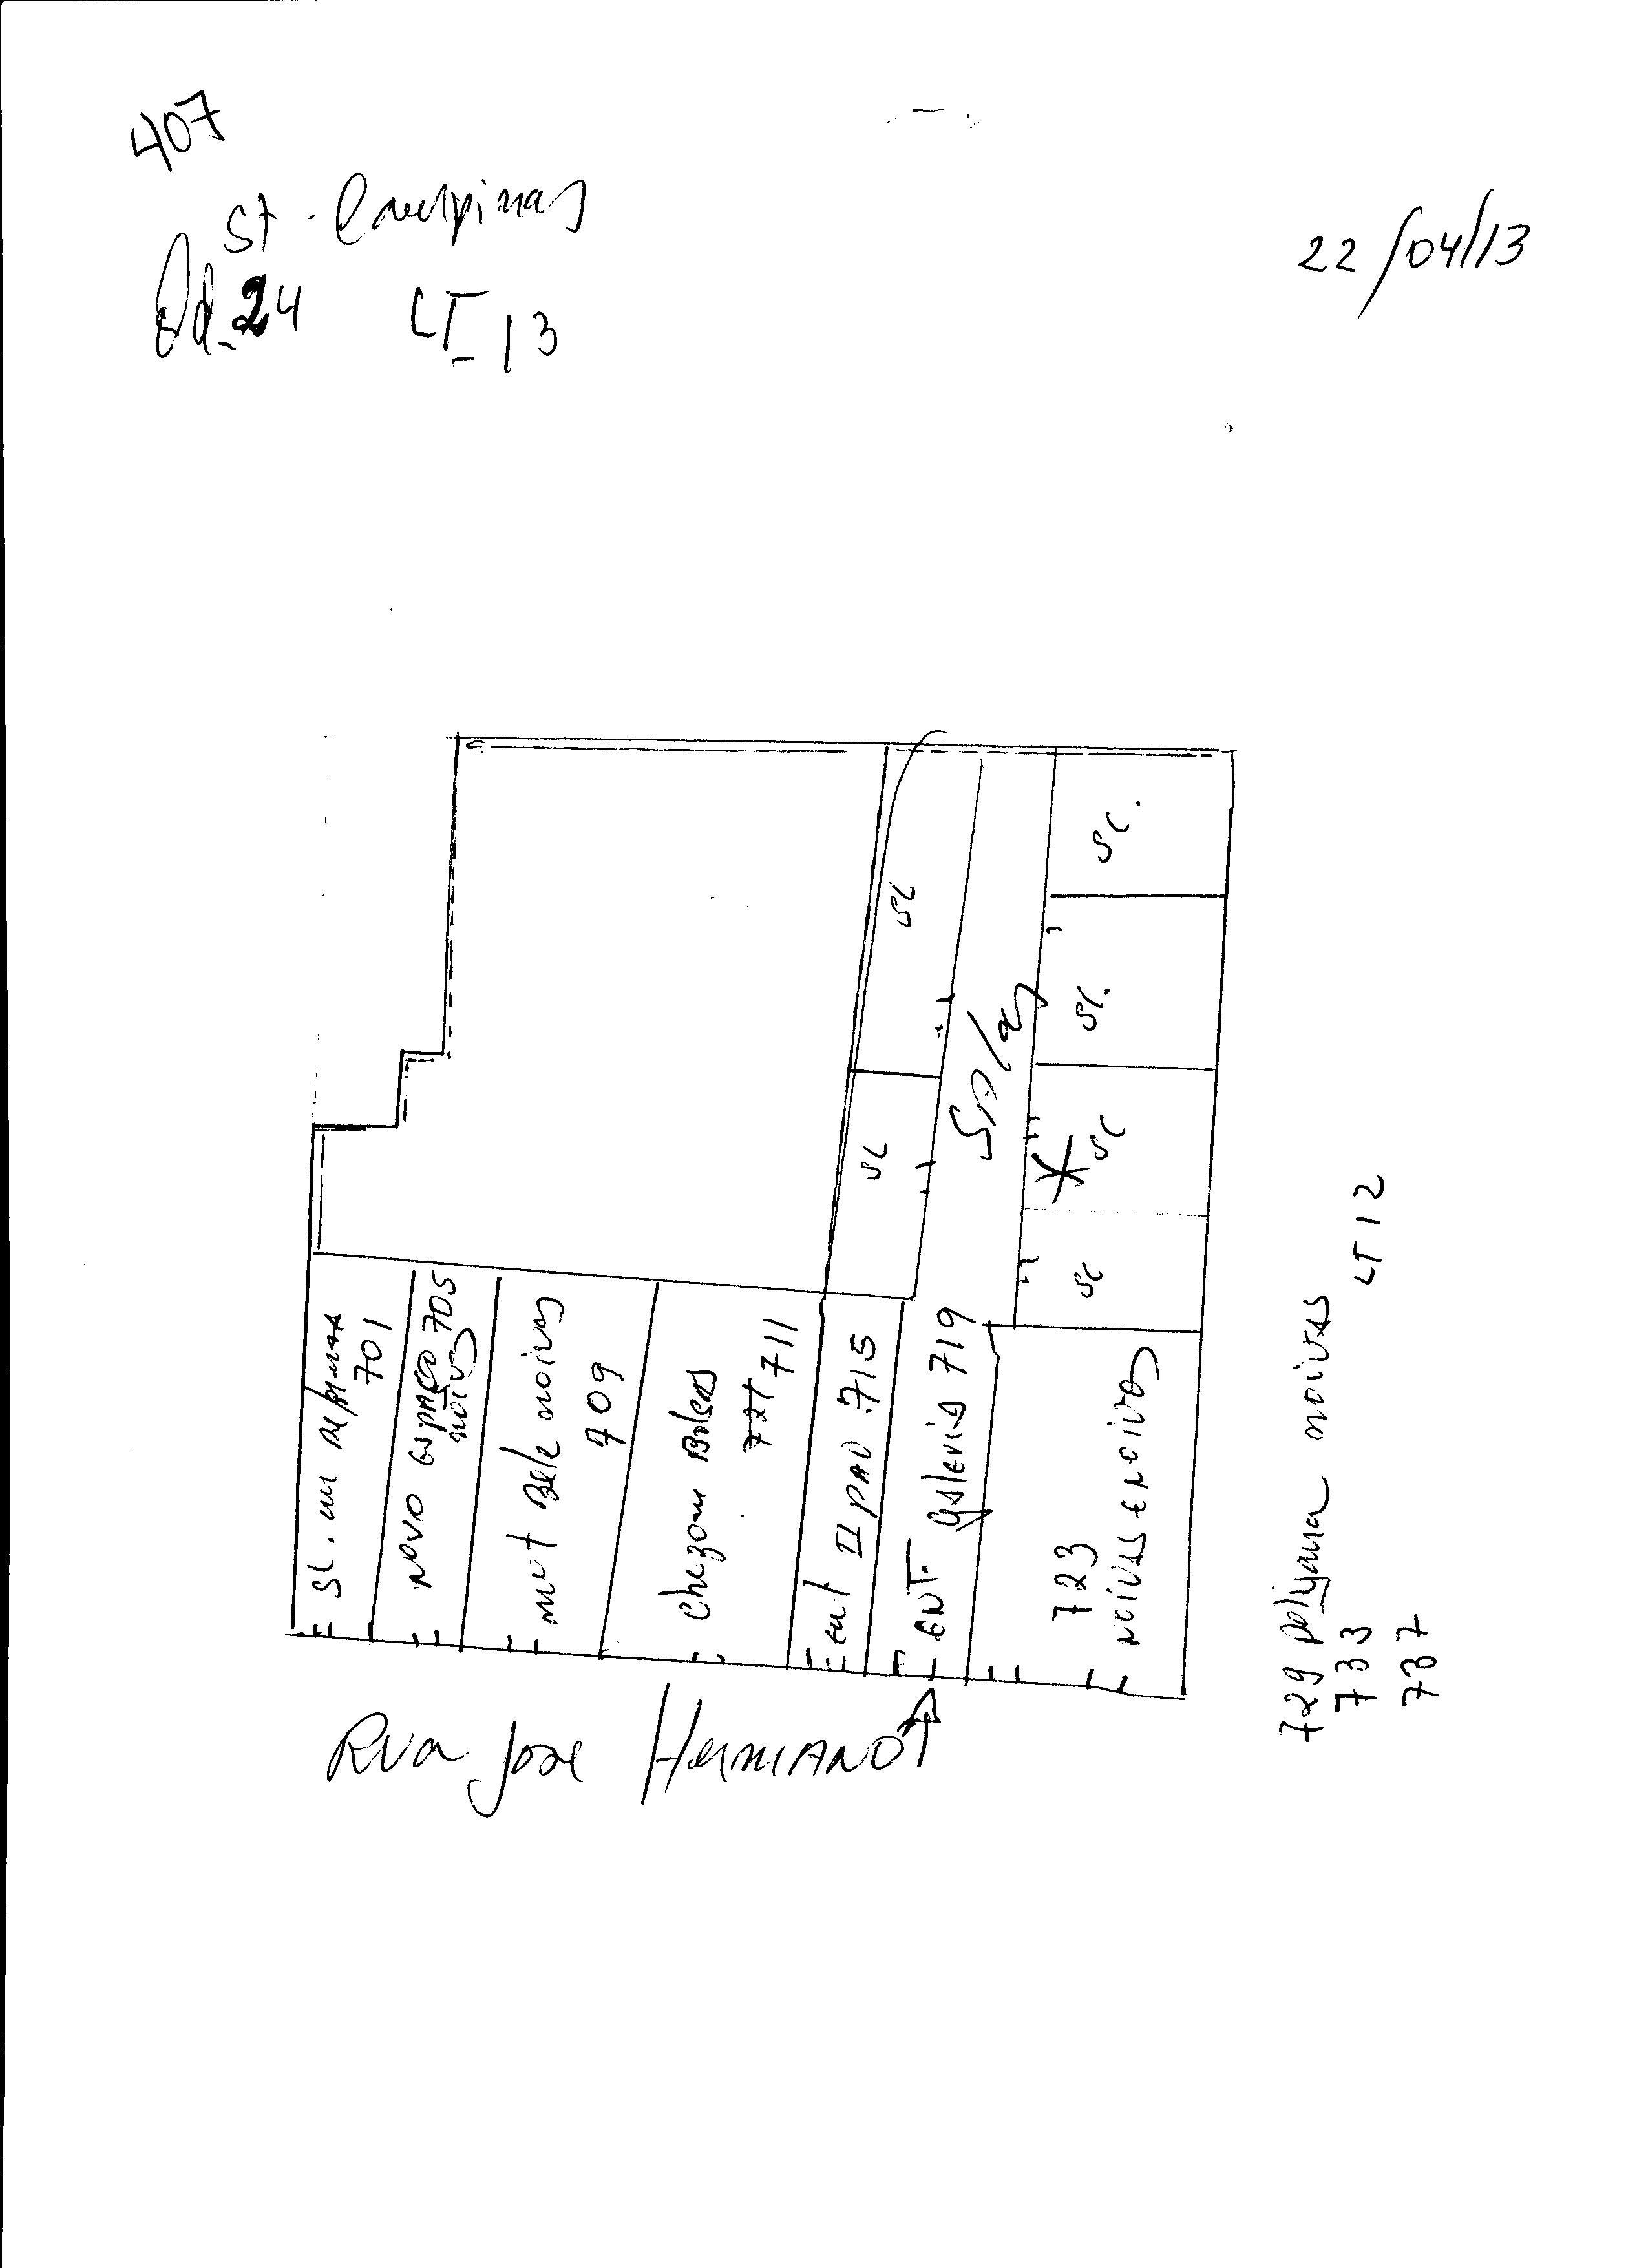 407
St. Campinas
Qd. 24 LT 13
22/04/13
SL.
SL
SL.
Salas
SL
SL
SL
SL. em
701
novo espaço 705
noivas
Bele noivas
709
Chezom Bolsas
711
ent II PAV. 715
ENT. galeria 719
723
noivas e noivos
729 polyana noivas LT 12
733
737
Rua Jose Hermano